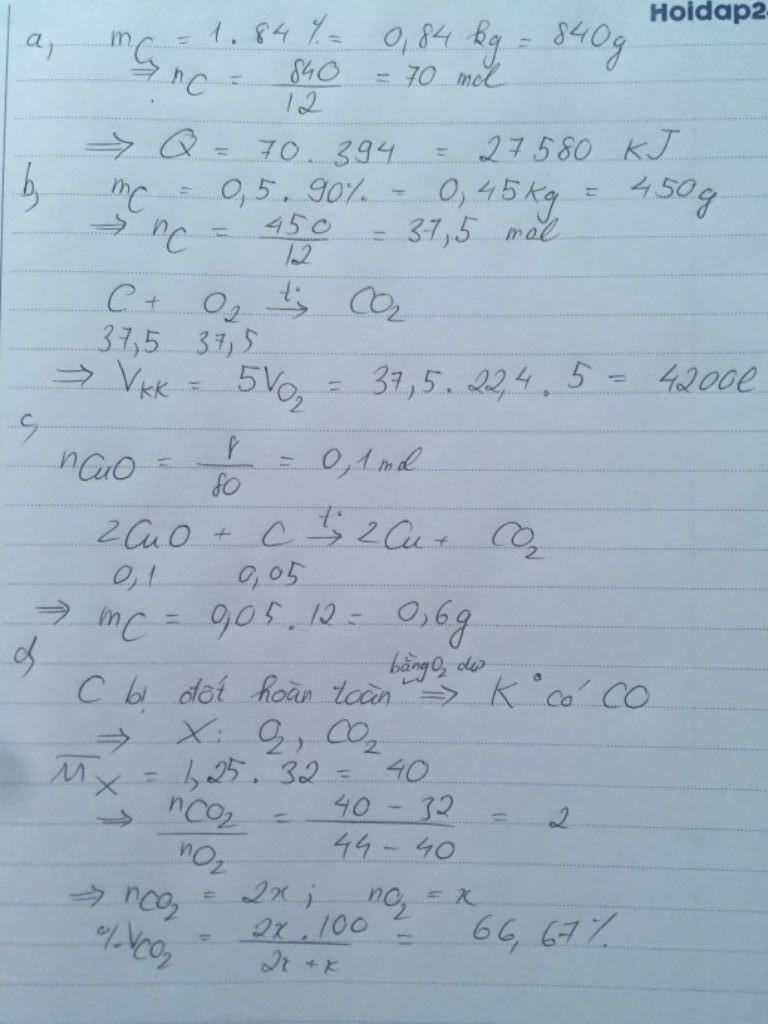 Hoidap2
a, mC = 1 . 84 % = 0,84 kg = 840g
⇒ nC = 840/12 = 70 mol
⇒ Q = 70 . 394 = 27580 kJ
b, mC = 0,5 . 90% = 0,45kg = 450g
⇒ nC = 450/12 = 37,5 mol
C + O2 t°→ CO2
37,5 37,5
⇒ VKK = 5VO2 = 37,5 . 22,4 . 5 = 4200l
c,
nCuO = 8/80 = 0,1 mol
2CuO + C t°→ 2Cu + CO2
0,1 0,05
⇒ mC = 0,05 . 12 = 0,6g
d,
bằng O2 dư
C bị đốt hoàn toàn ⇒ K° có CO
⇒ X: O2, CO2
M̅X = 1,25 . 32 = 40
⇒ nCO2/nO2 = (40 - 32)/(44 - 40) = 2
⇒ nCO2 = 2x ; nO2 = x
%VCO2 = 2x . 100/(2x + x) = 66,67%